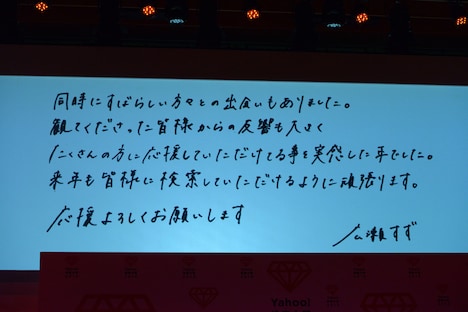 同時にすばらしい方々との出会いもありました。
観てくださった皆様からの反響も大きく
たくさんの方に応援していただけてる事を実感した年でした。
来年も皆様に検索していただけるように頑張ります。
応援よろしくお願いします
広瀬すず
Yahoo!